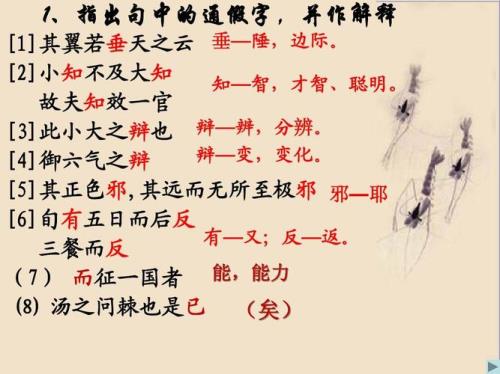 1、指出句中的通假字，并作解释
[1]其翼若垂天之云 垂—陲，边际。
[2]小知不及大知
知—智，才智、聪明。
故夫知效一官
[3]此小大之辩也 辩—辨，分辨。
[4]御六气之辩 辩—变，变化。
[5]其正色邪,其远而无所至极邪 邪—耶
[6]旬有五日而后反
有—又；反—返。
三餐而反
（7） 而征一国者 能，能力
(8) 汤之问棘也是已 （矣）